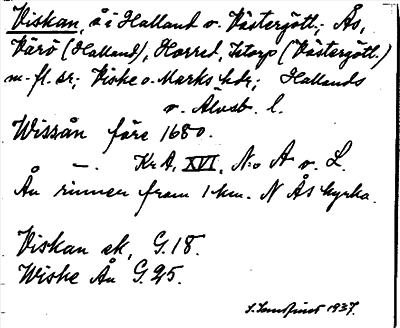 Viskan, å i Halland o. Västergötl.; Ås,
Värö (Halland), Horred, Istorp (Västergötl.)
m. fl. sr; Viske o. Marks hdr; Hallands
o. Älvsb. l.
Wissån före 1680.
— . Kr A, XVI, N:o A o. L.
Ån rinner fram 1 km. N Ås kyrka.
Viskan ek, G. 18.
Wiske Ån G. 25.
1937.